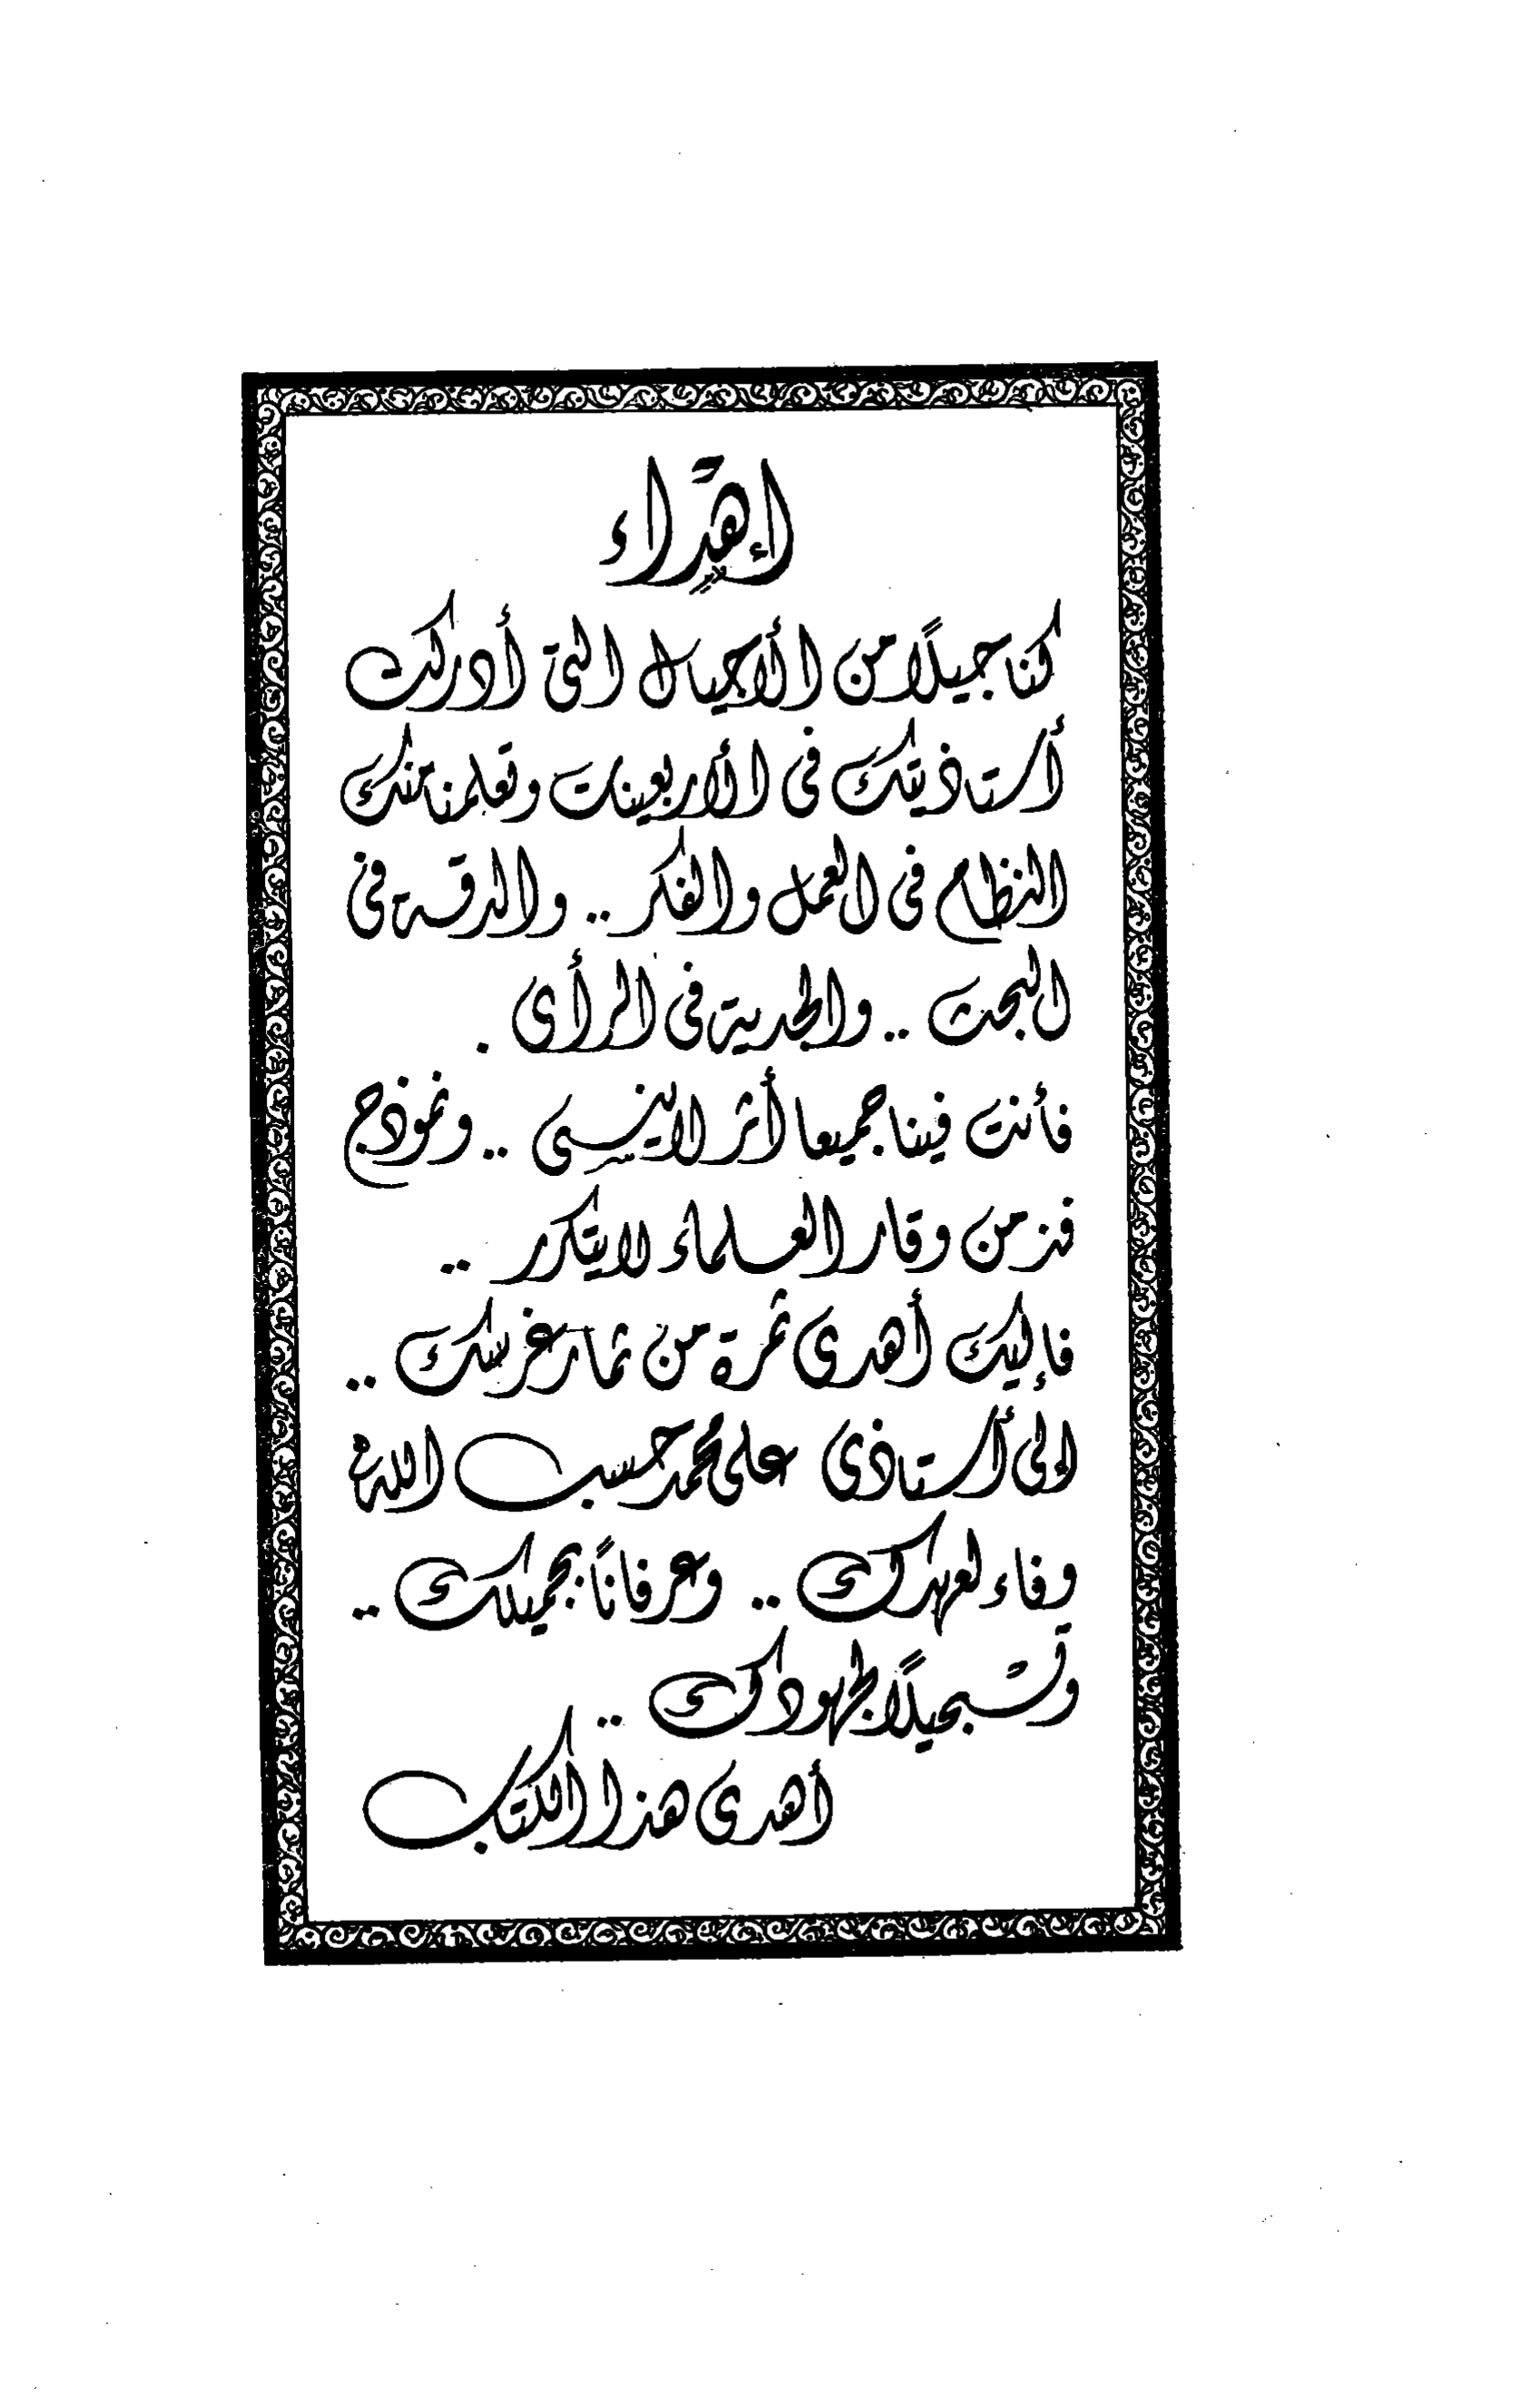 إهداء
كنا جيلاً من الأجيال التى أدركت
أستاذيتك فى الأربعينات وتعلمنا منك
النظام فى العمل والفكر .. والدقة فى
البحث .. والجدية فى الرأى .
فأنت فينا جميعا أثر لاينسى .. ونموذج
فذ من وقار العلماء لايتكرر ..
فإليك أهدى ثمرة من ثمار غرسك ..
إلى أستاذى على محمد حسب الله
وفاء لعهدك .. وعرفاناً بجميلك ..
وتسجيلاً لجهودك ..
أهدى هذا الكتاب